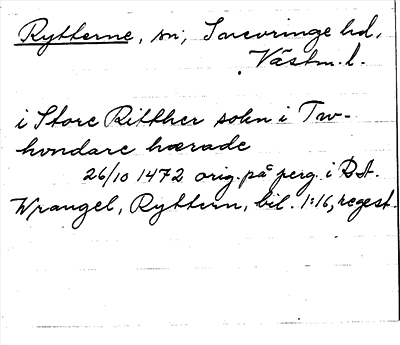 Rytterne, sn, Snevringe hd,
Västm. l.
i Store Ritther sokn i Tw-
hondare hærade
26/10 1472 orig. på perg. i RA.
Wrangel, Ryttern, bil. 1:16, regest.